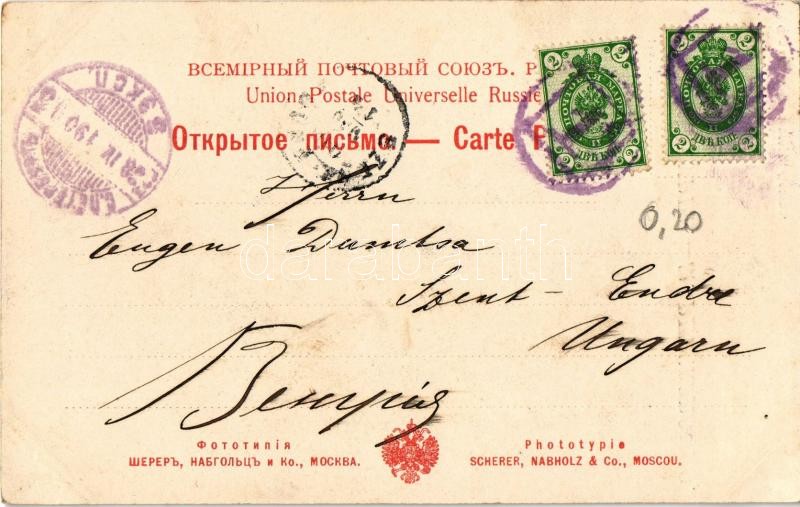 ВСЕМІРНЫЙ ПОЧТОВЫЙ СОЮЗЪ. Р
Union Postale Universelle Russie
Открытое письмо — Carte P
ПОЧТОВАЯ МАРКА
2 2
ДВѢ КОП.
2 2
ПОЧТОВАЯ МАРКА
2 2
ДВѢ КОП.
2 2
9 ЭКСП.
IV 190
С.ПЕТЕРБУРГЪ
Herrn
0,20
Eugen Dumtsa
darabanth
Szent - Endre
Ungarn
Венгрія
Фототипія
ШЕРЕРЪ, НАБГОЛЬЦЪ и Ко., МОСКВА.
Phototypie
SCHERER, NABHOLZ & Co., MOSCOU.